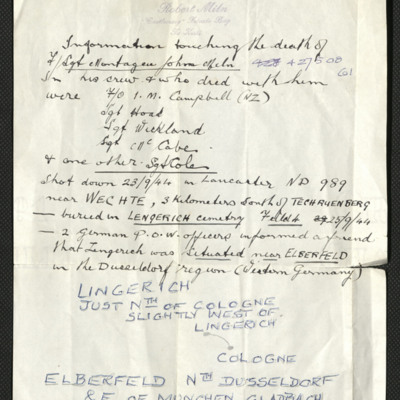 Robert Miln
Information touching the death of
F/Sgt Montague John Miln 427508
In his crew & who died with him
were F/O I. M. Campbell (NZ)
Sgt Hoad
Sgt Wickland
Sgt McCabe
& one other. Sgt Cole
Shot down 23/9/44 in Lancaster ND 989
near WECHTE, 3 kilometers South of TECHRUENBERG
— buried in LENGERICH cemetry Field 4 25/9/44
— 2 German P.O.W. officers informed a friend
that Lingerich was situated near ELBERFELD
in the Dusseldorf region (Western Germany)
LINGERICH
JUST NTH OF COLOGNE
SLIGHTLY WEST OF
LINGERICH
COLOGNE
ELBERFELD NTH DUSSELDORF
& E. OF MUNCHEN GLADBACH